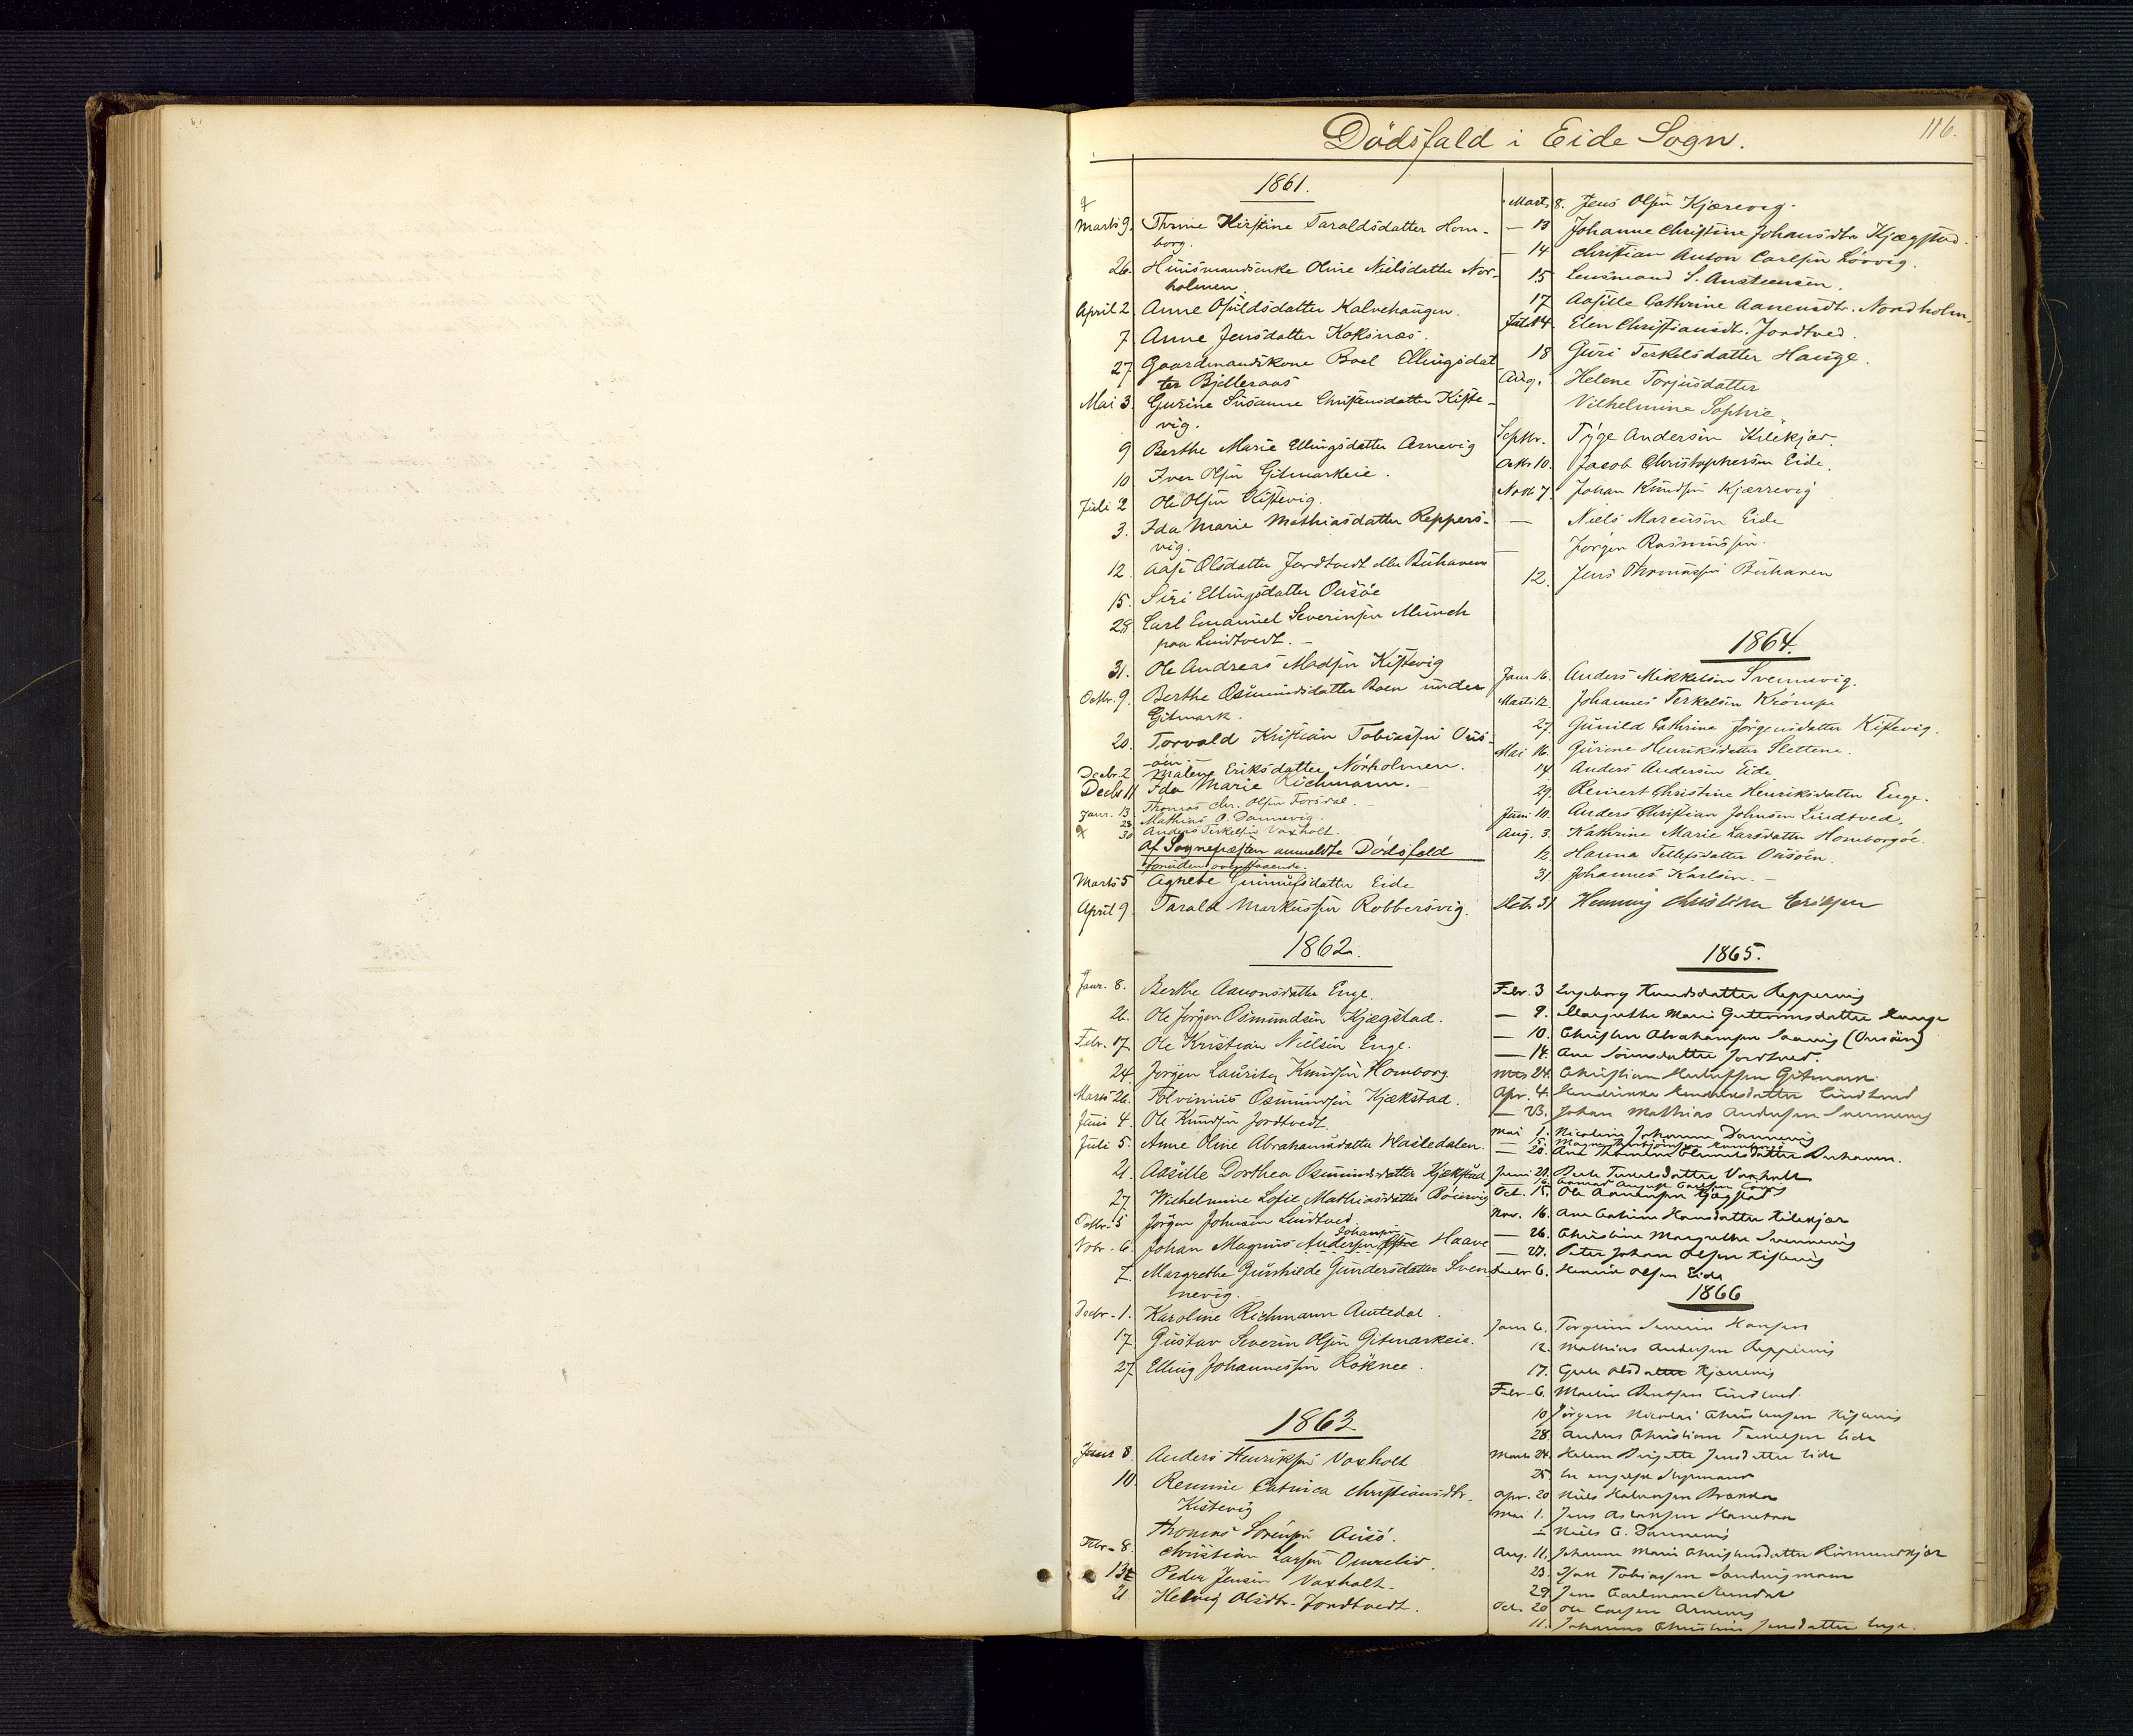 Dödsfald i Eide Sogn.
116.
1861.
Marts 9. Thrine Kirstine Taraldsdatter Hom-
borg.
26. Huusmandsenke Oline Nielsdatter Nor-
holmen.
April 2 Anne Osuldsdatter Kalvehaugen.
7. Anne Jensdatter Koksnæs.
27. Gaardmandskone Boel Ellingsdat
ter Bjelleraas
Mai 3. Gurine Susanne Christensdatter Kiste-
vig.
9 Berthe Marie Ellingsdatter Arnevig
10 Iver Olsen Gitmarkeie.
Juli 2 Ole Olsen Kistevig.
3. Ida Marie Mathiasdatter Reppers-
vig.
12. Aase Olsdatter Jordtvedt eller Buhaven
15. Siri Ellingsdatter Ousöe
28 Carl Emanuel Severinsen Munch
paa Lindtvedt.
31. Ole Andreas Madsen Kistevig
Octbr. 9. Berthe Osmundsdatter Boen under
Gitmark.
20. Torvald Kristian Tobiassen Ous-
öen.
Decbr. 2 Malene Eriksdatter Nörholmen.
Decbr 11 Ida Marie Richmann.
Janr. 13 Thomas Chr. Olsen Forsdal.
28 Mathias O. Dannevig.
30 Anders Terkelsen Voxholt.
Af Sognepresten anmeldte Dödsfald
foruden ovenstaaende
Marts 5 Agnete Gunnufsdatter Eide
April 9. Tarald Markussen Robbersvig.
1862.
Janr. 8. Berthe Aanonsdatter Enge.
26. Ole Jörgen Osmundsen Kjægstad.
Febr. 17. Ole Kristian Nielsen Enge.
24. Jörgen Lauritz Knudsen Homborg
Marts 26. Tolvinius Osmundsen Kjækstad.
Juni 4. Ole Knudsen Jordtvedt.
Juli 5. Anne Oline Abrahamsdatter Hasledalen.
21. Aasille Dorthea Osmundsdatter Kjækstad
27. Wilhelmine Sofie Mathiasdatter
Octbr. 5 Jörgen Johnsen Lindtved.
Johansen
Vobr. 6. Johan Magnus Andersen Haave
7. Margrethe Gunhilde Gundersdatter Sven
nevig.
Decbr. 1. Karoline Richmann Amtedal.
17. Gustav Severin Olsen Gitmarkeie.
27. Elling Johannessen Röknee.
1863
Janr 8. Anders Henriksen Voxholt
10. Remine Catrica Christiansdtr.
Kistevig
Thomas Sörensen Ausö.
Febr. 8. Christian Larsen Omrelid.
13 Peder Jensen Voxholt.
21 Helvig Olsdtr. Jordtvedt.
Marts 8. Jens Olsen Kjærevig.
— 13 Johanne Christine Johansdtr Kjægstad.
— 14 Christian Anton Carlsen Lörvig.
15 Lensmand S. Austeensen.
17 Aasille Cathrine Aanensdtr. Nordholm.
Juli 14. Elen Christiansdt. Jordtved.
18 Guri Terkelsdatter Hauge.
Aug. Helene Torjusdatter
Vilhelmine Sophie.
Septbr. Tyge Andersen Kilekjær.
Octb 10. Jacob Christophersen Eide.
Novb 7. Johan Knudsen Kjærrevig
— Niels Marcusen Eide
— Jörgen Rasmussen.
12. Jens Thomassen Buhaven
1864.
Janr. 16. Anders Mikkelsen Svennevig.
Marts 12. Johannes Terkelsen Krömpe
27. Gunild Cathrine Jörgensdatter Kistevig.
Mai 16. Gurine Henriksdatter Slettene.
14 Anders Andersen Eide
29. Reinert Christine Henriksdatter Enge.
Juni 10. Anders Christian Johnsen Lindtved.
Aug. 3. Kathrine Marie Larsdatter Homborgöe.
12. Hanna Tellefsdatter Ousöen.
31 Johannes Karlsen.
Octb. 31 Henning Christian Eriksen
1865.
Febr. 3 Ingeborg Knudsdatter Reppervig
— 9. Margrethe Marie Guttormsdatter Hauge
— 10. Christen Abrahamsen (Ousöen)
— 14. Ane Sörensdatter Jordtved.
Mts 24. Christian Gitmark
Apr. 4. Lindtved
— 23. Johan Mathias Andersen Svennevig
Mai 1. Nicoline Johanne Dannevig
— 5.
— 20. Buhaven.
Juni 21. Berte Terkelsdatter Voxholt
Oct. 15. Ole Kjægstad
Nov. 16. Ane Catrine Hansdatter Kilekjær
— 26. Christine Margrethe Svennevig
— 27. Peter Johan Olsen Kistevig
Decbr 6. Henrik Olsen Eide
1866
Janr 6. Torgrim Severin Hansen
12. Mathias Andersen Reppervig
17. Olsdatter Kjærrevig
Febr. 6. Martin Lindtved.
10 Jörgen Nicolai Christensen Kistevig
28. Anders Christian Terkelsen Eide
Marts 24. Helene Birgitte Jensdatter Eide
25. En engelsk Sömand
Apr. 20 Niels Halvorsen
Mai 1. Jens
— Niels O. Dannevig
Aug. 11. Johanne Marie Christensdatter
23. Tobiassen
29. Jens
Oct. 20 Ole Arnevig
11. Johanne Christine Jensdatter Enge.